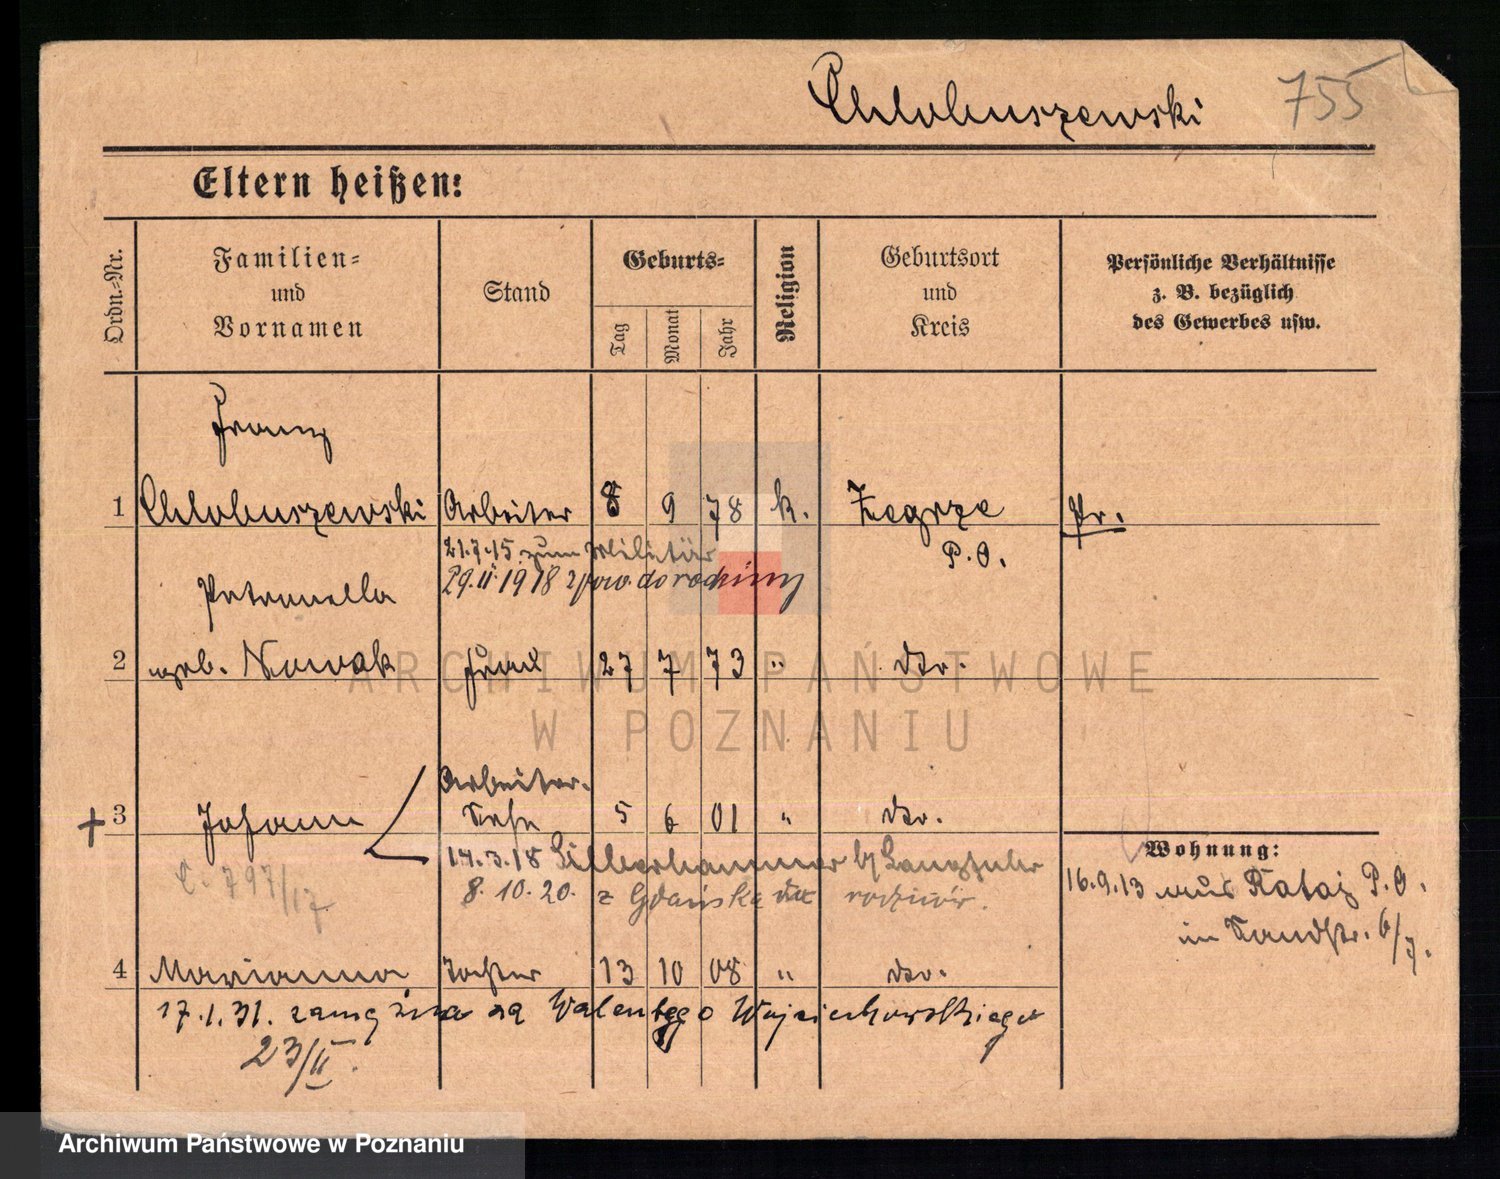 Chlobuszewski 755
Eltern heißen:
Ordn.-Nr.
Familien-
und
Vornamen
Stand
Geburts-
Tag
Monat
Jahr
Religion
Geburtsort
und
Kreis
Persönliche Verhältnisse
z. B. bezüglich
des Gewerbes usw.
Franz
1 Chlobuszewski Arbeiter 8 9 78 k. Zegrze Pr.
P.O.
21.7.15 zum Militär
29.II.1918 zpow. do rodziny
Petronella
2 geb. Nowak Frau 27 7 73 " do.
Arbeiter.
3 Johann Sohn 5 6 01 " do.
14.3.18 Silberhammer b/ Langfuhr
C. 797/17
8.10.20. z Gdańska do rodziców.
Wohnung:
16.9.13 aus Rataj P.O.
in Sandstr. 6/7.
4 Marianna Tochter 13 10 08 " do.
17.1.31. zamężna za Walentego Wojciechowskiego
23/II.
ARCHIWUM PAŃSTWOWE
W POZNANIU
Archiwum Państwowe w Poznaniu